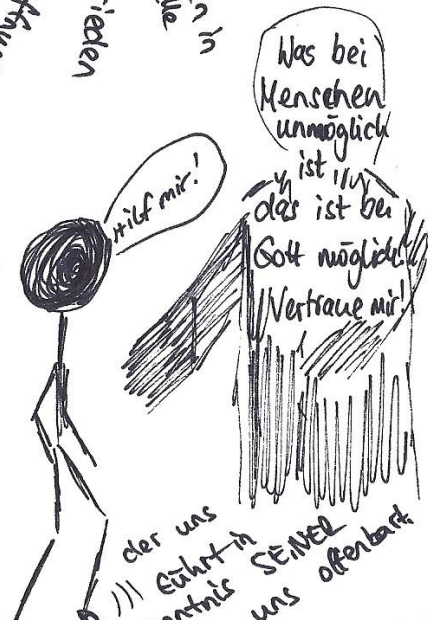 n in
lle
ieden
Hilf mir!
Was bei
Menschen
unmöglich
ist
das ist bei
Gott möglich!
Vertraue mir!
der uns
führt in
entnis SEINER
uns offenbart.